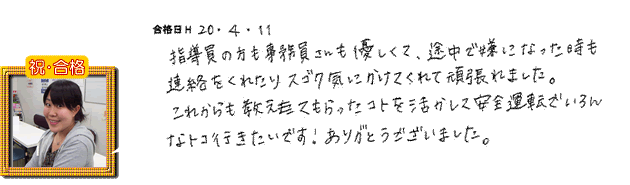 合格日 H 20・4・11
指導員の方も事務員さんも優しくて、途中で嫌になった時も
連絡をくれたりスゴク気にかけてくれて頑張れました。
祝・合格
これからも教えてもらったコトを活かして安全運転でいろん
なトコ行きたいです！ありがとうございました。